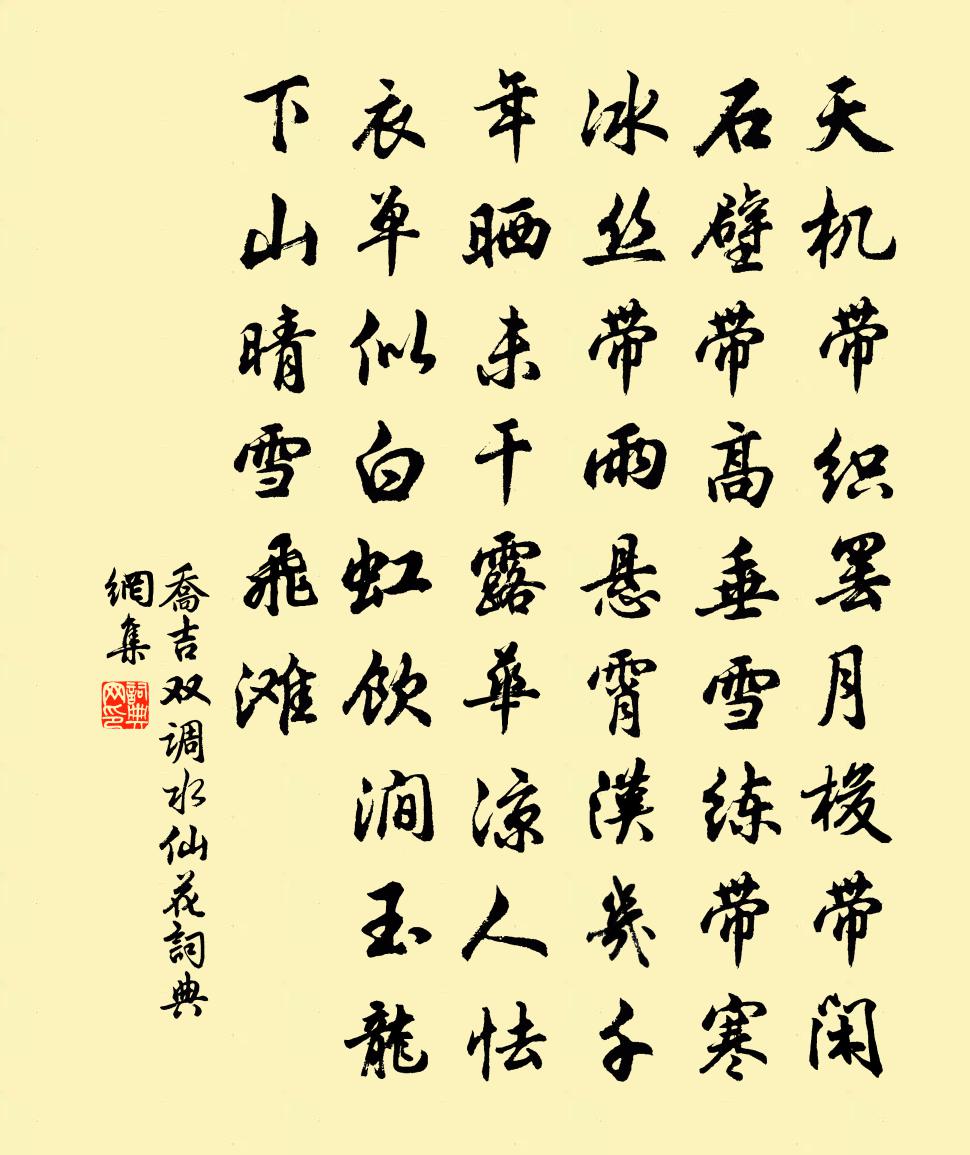 天机带织罢月梭带闲
石壁带高垂雪练带寒
冰丝带雨悬霄漢幾千
年晒未干露華凉人怯
衣单似白虹饮涧玉龍
下山晴雪飛滩
喬吉双调水仙花詞典
網集
詞典
网印